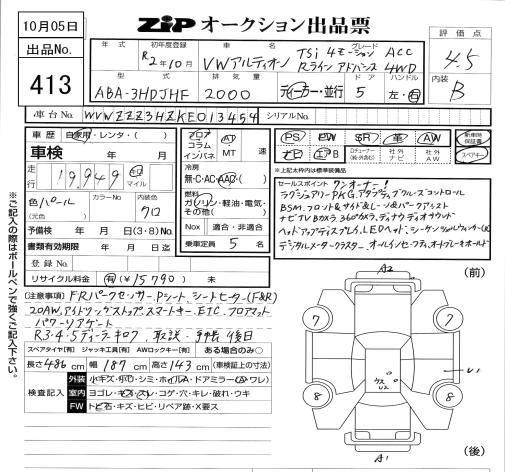 10月05日
出品No.
413
ZIP オークション出品票
評価点
4.5
内装
B
年式
初年度登録
車名
グレード
R2年10月
VWアルティオン
TSi 4モーション ACC
Rライン アドバンス 4WD
型式
排気量
ドア
ハンドル
ABA-3HDJHF
2000
ディーラー・並行
5
左・右
車台No.
WVWZZZ3HZKE013454
シリアルNo.
車歴
自家用・レンタ・( )
車検
年 月
走行
19,949
km マイル
色 パール
(元色)
カラーNo.
内装色
クロ
予備検 年 月 日 (3・8) No.
書類有効期限 年 月 日
登録No.
リサイクル料金 有 (¥15790) 未
フロア
コラム
インパネ
AT
MT
速
冷房
無・C・AC・AAC・( )
燃料
ガソリン・軽油・電気・
その他( )
Nox
適合・非適合
乗車定員 5 名
PS
PW
SR
革
AW
ナビ
エアB
Dチューナー
(純・社外)
社外
ナビ
社外
AW
新車時
保証書
スペアキー
※上記太枠内は標準装備品
セールスポイント ワンオーナー!
ラグジュアリーPKG. アダプティブクルーズコントロール
BSM. フロント&サイド&レーン&パークアシスト
ナビTV Bカメラ 360°カメラ. ディナウディオサウンド
ヘッドアップディスプレイ. LEDヘッド. シーケンシャルウィンカー(R)
デジタルメータークラスター. オールインセーフティ. オートブレーキホールド
(注意事項) FRパークセンサー. Pシート シートヒーター(F&R)
20AW. アイドリングストップ. スマートキー. ETC. フロアマット
パワーリアゲート
R3・4・5 ディーラー
取説・手帳後日
スペアタイヤ[有] ジャッキ工具[有] AWロックキー[有] ある場合のみ○
長さ486cm 幅187cm 高さ143cm (車検証上の寸法)
検査記入
外装
小キズ・小凹・シミ・ホイルA・ドアミラー(A・ワレ)
室内
ヨゴレ・キズ・スレ・コゲ・穴・キレ・破れ・ウキ
FW
トビ石・キズ・ヒビ・リペア跡・X要ス
※ご記入の際はボールペンで強くご記入下さい。
A2
(前)
7
7
8
8
U1
U2
A1
(後)